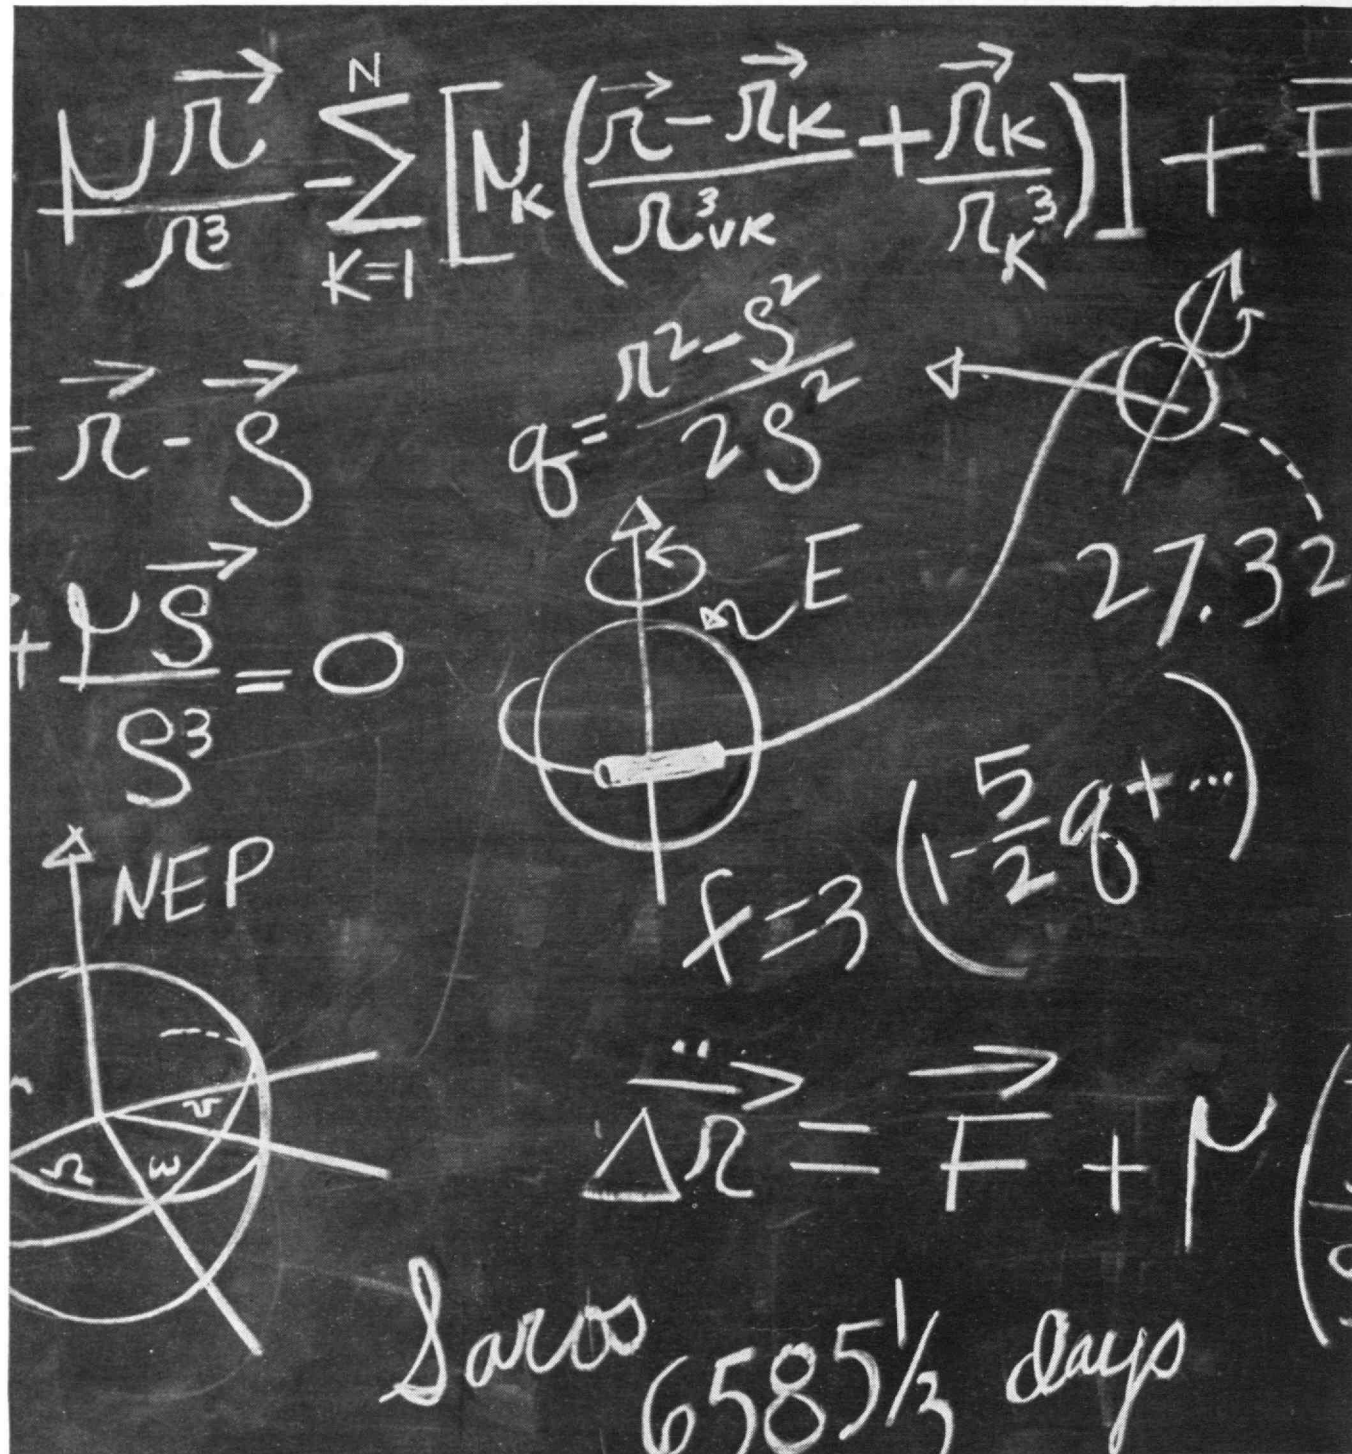 μr⃗/r³ - Σ_{K=1}^{N} [μ_K ((r⃗ - r⃗_K)/r³_{VK} + r⃗_K/r_K³)] + F⃗
= r⃗ - ρ⃗
q = (r² - ρ²)/2ρ²
27.32
E
+ μρ⃗/ρ³ = 0
f = 3 (1 - 5/2 q + ...)
NEP
v
Ω ω
Δr⃗̈ = F⃗ + μ (
Saros 6585⅓ days